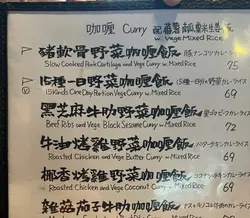 咖喱 Curry 配蕃薯粟米薑飯
w. Vege Mixed Rice
豬軟骨野菜咖喱飯 豚ナンコツカレーライス
Slow Cooked Pork Cartilage and Vege Curry w. Mixed Rice 75
15種一日野菜咖喱飯 15種一日分の野菜カレーライス
15 Kinds One Day Portion Vege Curry w. Mixed Rice 69
黑芝麻牛肋野菜咖喱飯
Beef Ribs and Vege Black Sesame Curry w. Mixed Rice 72
牛油烤雞野菜咖喱飯 バターチキンカレーライス
Roasted Chicken and Vege Butter Curry w. Mixed Rice 69
椰香烤雞野菜咖喱飯 ココナッツチキンカレーライス
Roasted Chicken and Vege Coconut Curry w. Mixed Rice 69
雜菇茄子牛肋咖喱飯